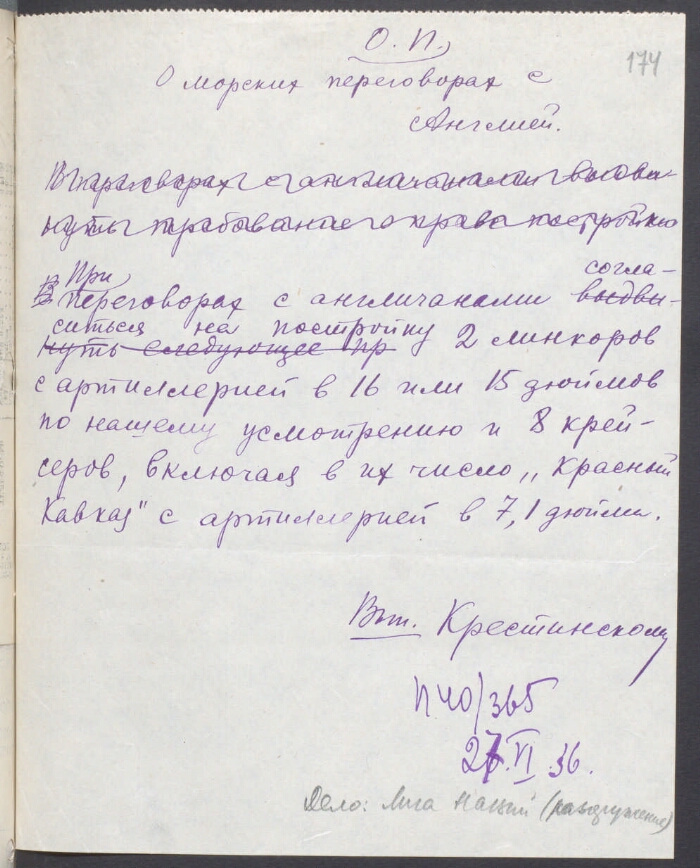 О. П.
174
О морских переговорах с
Англией.
В переговорах с англичанами выдви-
нуть требование о праве постройки
При согла-
В переговорах с англичанами выдви-
ситься на постройку 2 линкоров
нуть следующее пр
с артиллерией в 16 или 15 дюймов
по нашему усмотрению и 8 крей-
серов, включая в их число „Красный
Кавказ" с артиллерией в 7,1 дюйма.
Вып. Крестинскому
П40/365
27.VI.36.
Дело: Лига Наций (разоружение)